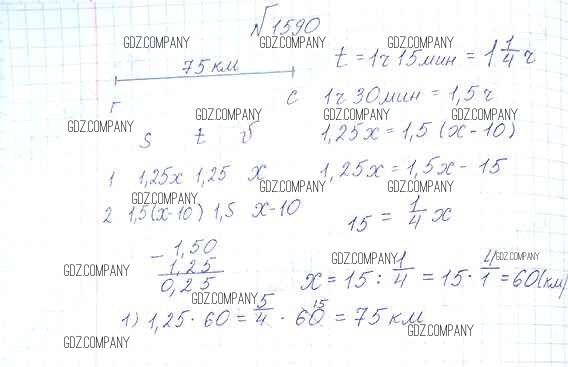 №1590
75 км
t = 1ч 15мин = 1 1/4 ч
г с
1ч 30мин = 1,5ч
S t υ
1,25x = 1,5(x-10)
1 1,25x 1,25 x
1,25x = 1,5x - 15
2 1,5(x-10) 1,5 x-10
15 = 1/4 x
- 1,50
1,25
0,25
x = 15 : 1/4 = 15 · 4/1 = 60(км)
1) 1,25 · 60 = 5/4 · 60 15 = 75 км
GDZ.COMPANY GDZ.COMPANY GDZ.COMPANY
GDZ.COMPANY GDZ.COMPANY GDZ.COMPANY GDZ.COMPANY
GDZ.COMPANY GDZ.COMPANY GDZ.COMPANY
GDZ.COMPANY GDZ.COMPANY GDZ.COMPANY
GDZ.COMPANY GDZ.COMPANY
GDZ.COMPANY GDZ.COMPANY